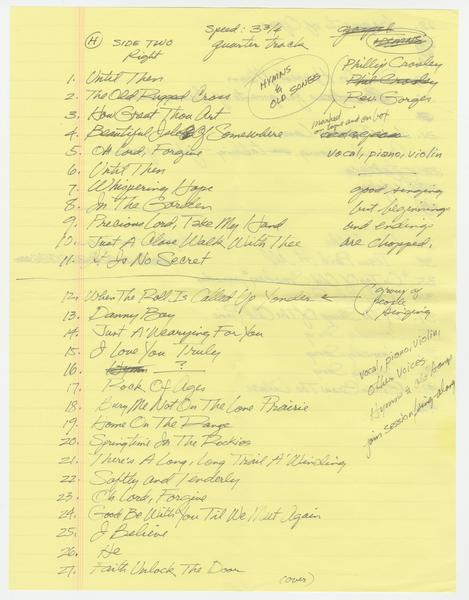 (H) SIDE TWO
Right
Speed: 3 3/4
quarter track
gospel
HYMNS
HYMNS
&
OLD SONGS
Phillip Crosley
Phil Crosley
Rev. Gorges
marked
on tape and on box
vocal, piano, violin
good singing
but beginnings
and endings
are chopped.
1. Until Then
2. The Old Rugged Cross
3. How Great Thou Art
4. Beautiful Isle Of Somewhere
5. Oh Lord, Forgive
6. Until Then
7. Whispering Hope
8. In The Garden
9. Precious Lord, Take My Hand
10. Just A Close Walk With Thee
11. It Is No Secret
12. When The Roll Is Called Up Yonder ←
group of
people
singing
13. Danny Boy
14. Just A'Wearying For You
15. I Love You Truly
16. Hymn ?
17. Rock Of Ages
18. Bury Me Not On The Lone Prairie
19. Home On The Range
20. Springtime In The Rockies
21. There's A Long, Long Trail A'Winding
22. Softly and Tenderly
23. Oh Lord, Forgive
24. God Be With You Til We Meet Again
25. I Believe
26. He
27. Faith Unlock The Door
vocal, piano, violin,
other voices
Hymns & old songs
join session/sing-along
(over)